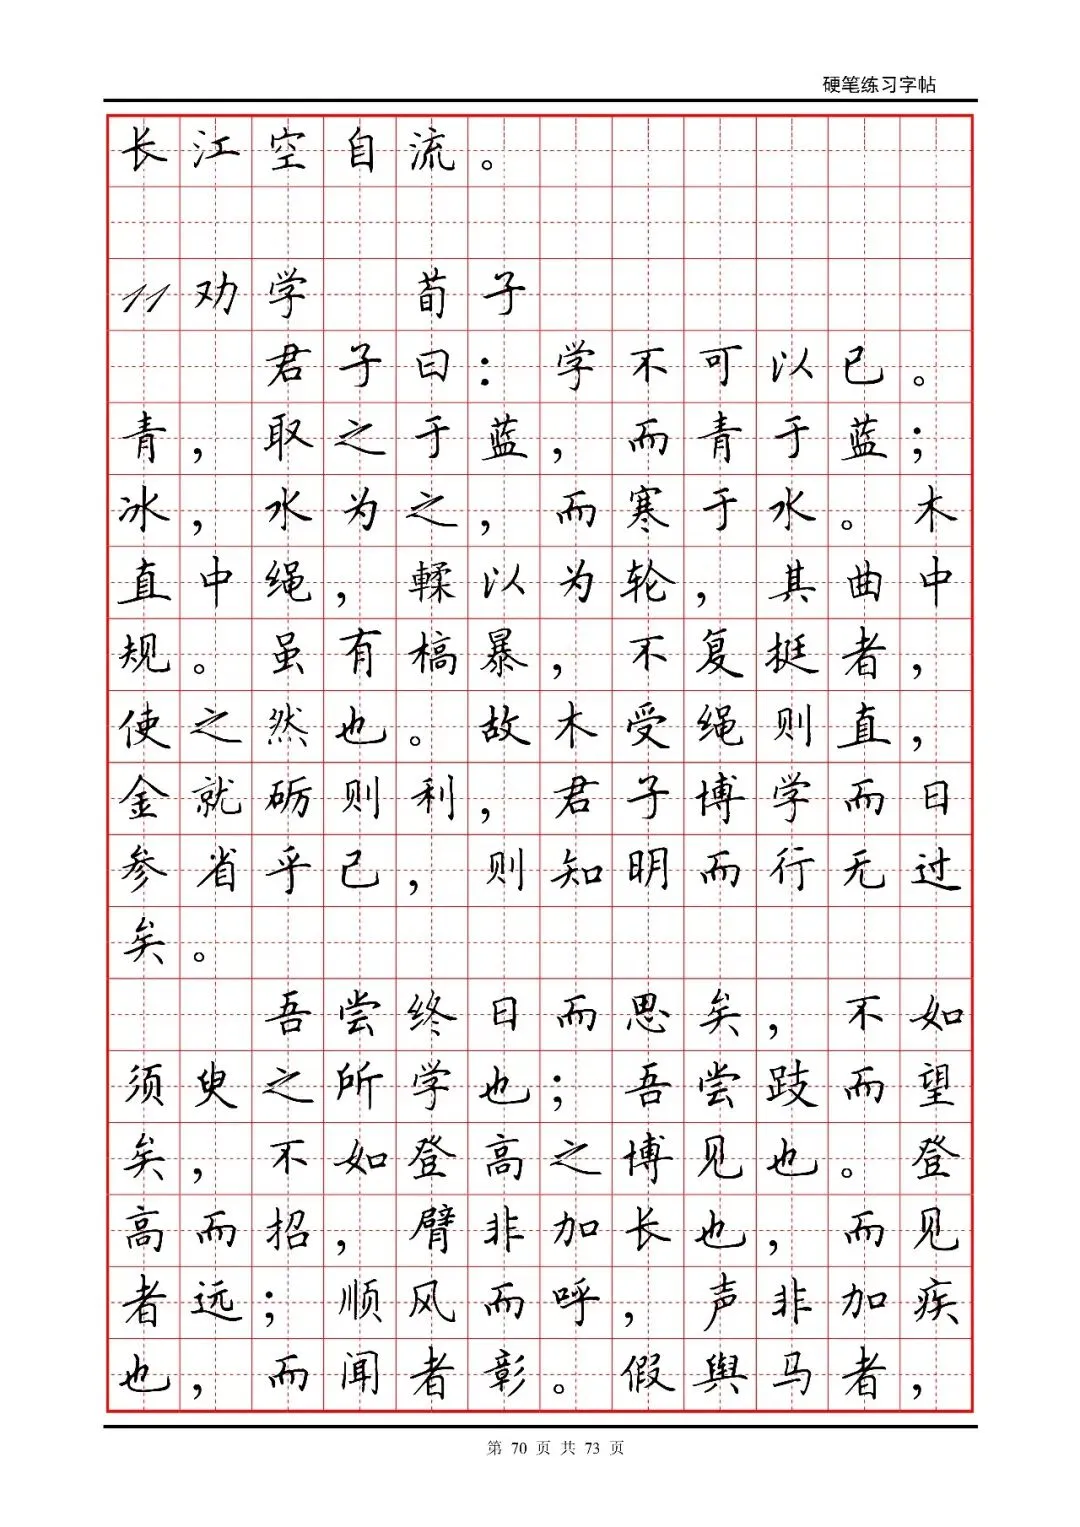 硬笔练习字帖
长江空自流。
11劝学 荀子
君子曰：学不可以已。
青，取之于蓝，而青于蓝；
冰，水为之，而寒于水。木
直中绳，輮以为轮，其曲中
规。虽有槁暴，不复挺者，
使之然也。故木受绳则直，
金就砺则利，君子博学而日
参省乎己，则知明而行无过
矣。
吾尝终日而思矣，不如
须臾之所学也；吾尝跂而望
矣，不如登高之博见也。登
高而招，臂非加长也，而见
者远；顺风而呼，声非加疾
也，而闻者彰。假舆马者，
第 70 页 共 73 页